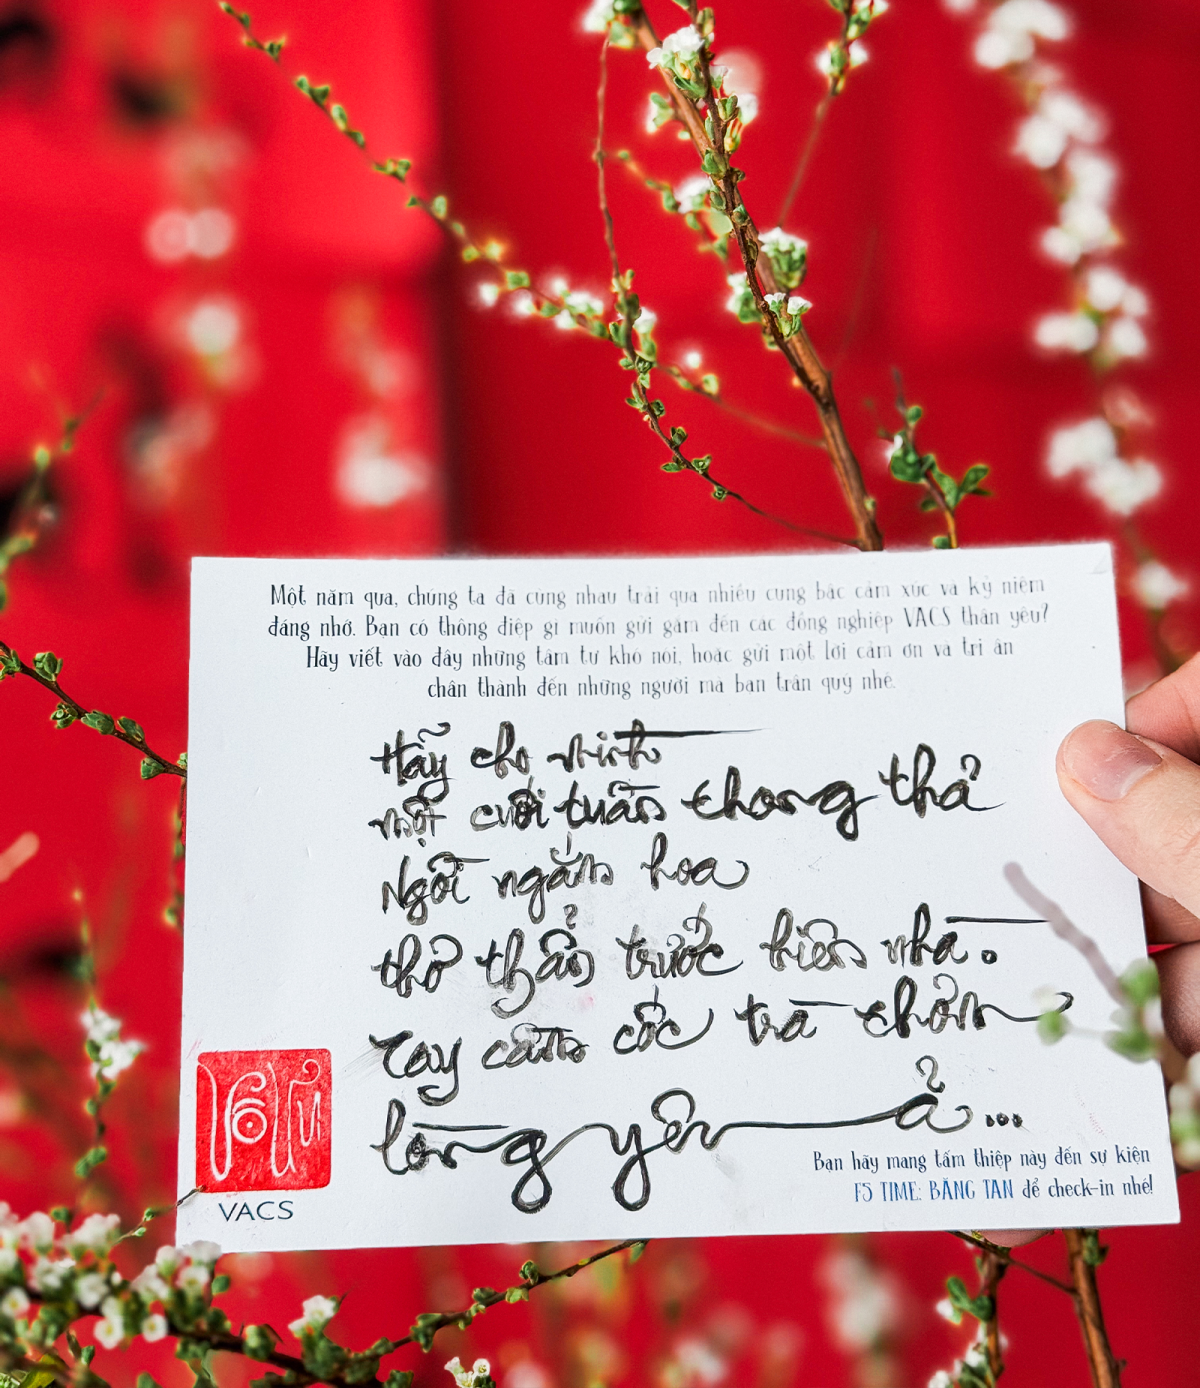 Một năm qua, chúng ta đã cùng nhau trải qua nhiều cung bậc cảm xúc và kỷ niệm
đáng nhớ. Bạn có thông điệp gì muốn gửi gắm đến các đồng nghiệp VACS thân yêu?
Hãy viết vào đây những tâm tư khó nói, hoặc gửi một lời cảm ơn và tri ân
chân thành đến những người mà bạn trân quý nhé.
Hãy cho mình
một cuối tuần thong thả
Ngồi ngắm hoa
thơ thẩn trước hiên nhà.
Tay cầm cốc trà thơm
lòng yên ả...
Vô Ưu
VACS
Bạn hãy mang tấm thiệp này đến sự kiện
F5 TIME: BĂNG TAN để check-in nhé!